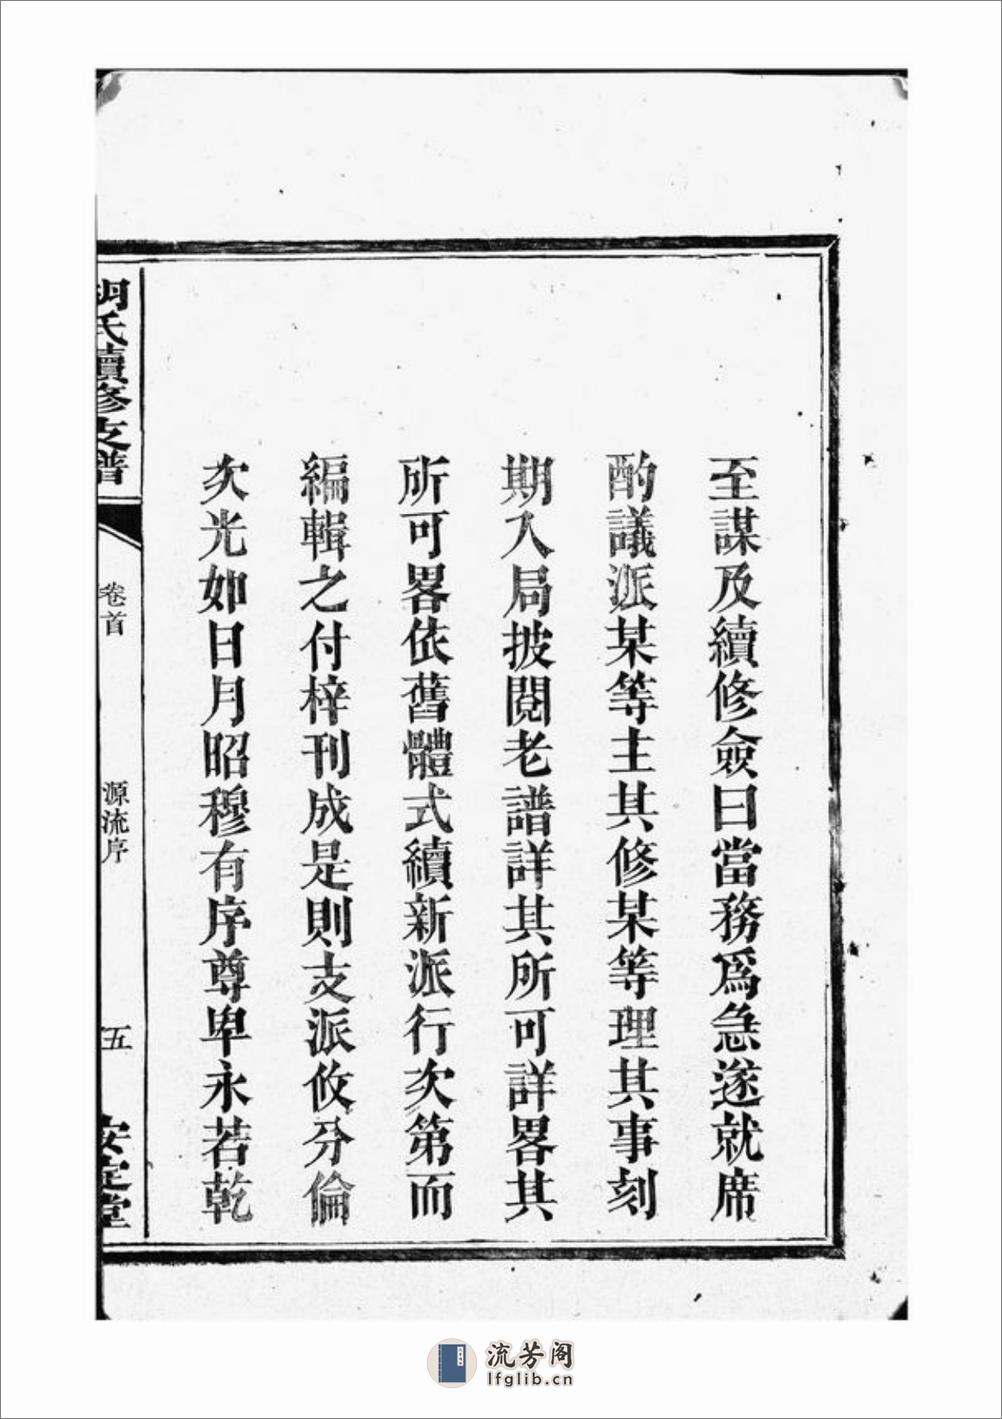 至謀及續修僉曰當務爲急遂就席
酌議派某等主其修某等理其事刻
期入局披閱老譜詳其所可詳畧其
所可畧依舊體式續新派行次第而
編輯之付梓刊成是則支派攸分倫
次光如日月昭穆有序尊卑永若乾
胡氏續修支譜
卷首
源流序
五
安定堂
流芳阁
lfglib.cn